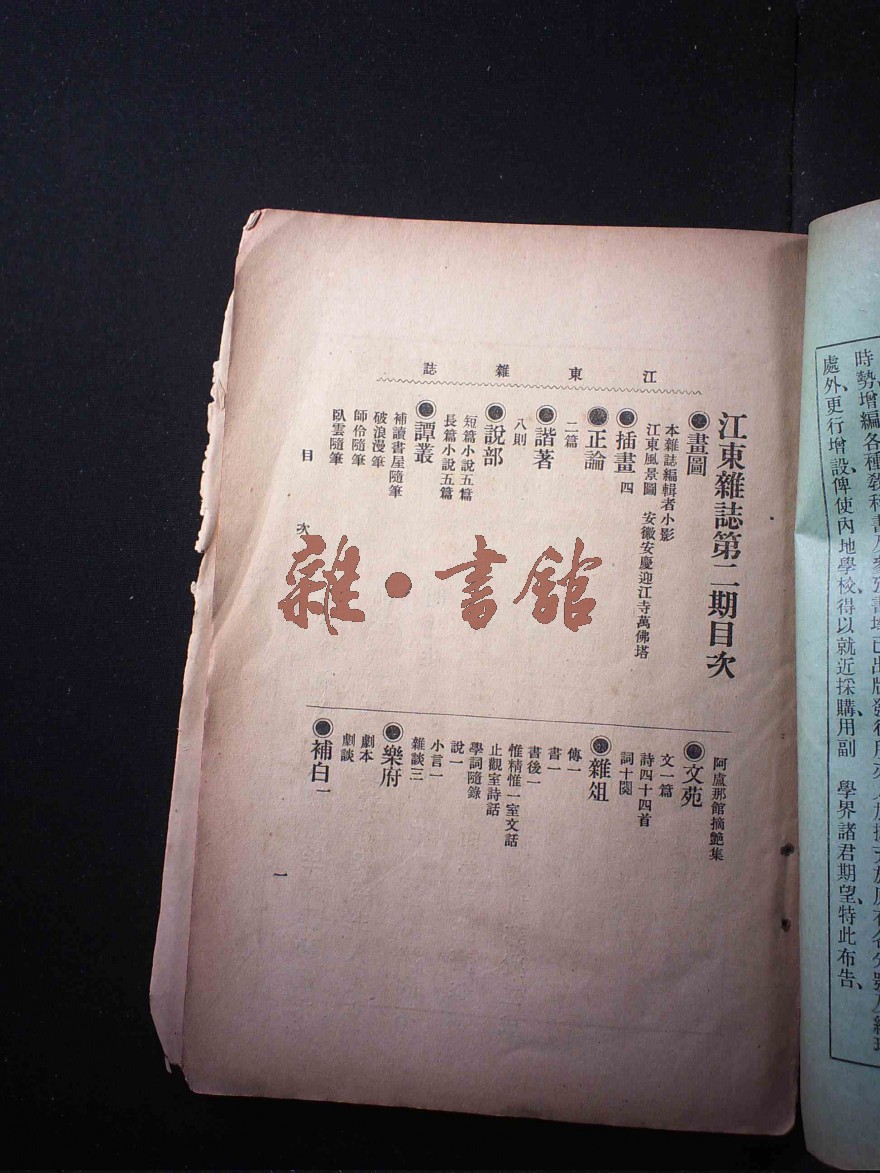 江東雜誌
江東雜誌第二期目次
●畫圖
本雜誌編輯者小影
江東風景圖 安徽安慶迎江寺萬佛塔
●插畫 四
●正論
二篇
●諧著
八則
●說部
短篇小說五篇
長篇小說五篇
●譚叢
補讀書屋隨筆
破浪漫筆
師伶隨筆
臥雲隨筆
目次
阿盧那館摘艷集
●文苑
文一篇
詩四十四首
詞十闋
●雜俎
傳一
書一
書後一
惟精惟一室文話
止觀室詩話
學詞隨錄
說一
小言一
雜談三
●樂府
劇本
劇談
●補白 一
一
雜·書館
時勢、增編各種教科書及參攷書增已出版發行所
處外、更行增設俾使內地學校、得以就近採購用副 學界諸君期望、特此布告、